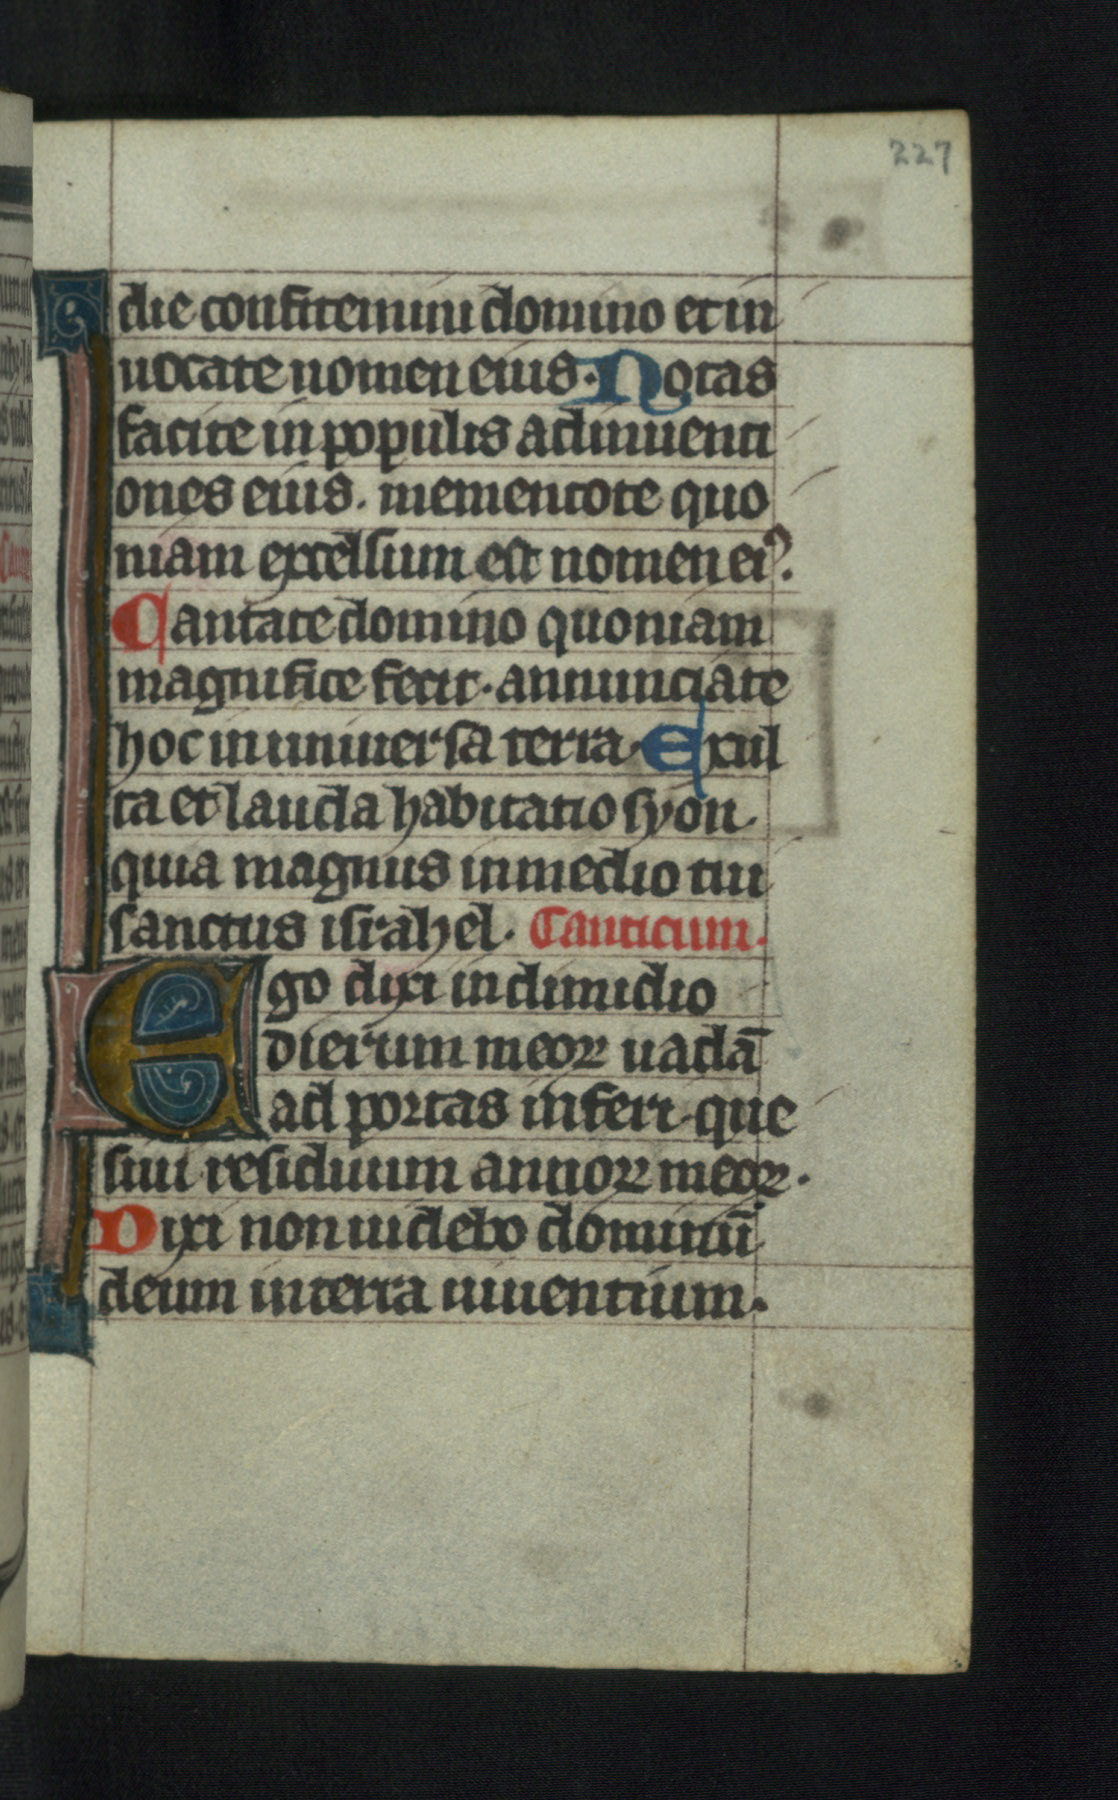 227
die confitemini domino et in
uocate nomen eius. Notas
facite in populis adinuenti
ones eius. mementote quo
niam excelsum est nomen eiꝰ.
Cantate domino quoniam
magnifice fecit. annunciate
hoc in uniuersa terra. Exul
ta et lauda habitatio syon.
quia magnus in medio tui
sanctus israhel. Canticum.
Ego dixi in dimidio
dierum meoꝝ uadā
ad portas inferi. que
siui residuum annoꝝ meoꝝ.
Dixi non uidebo dominū
deum in terra uiuentium.